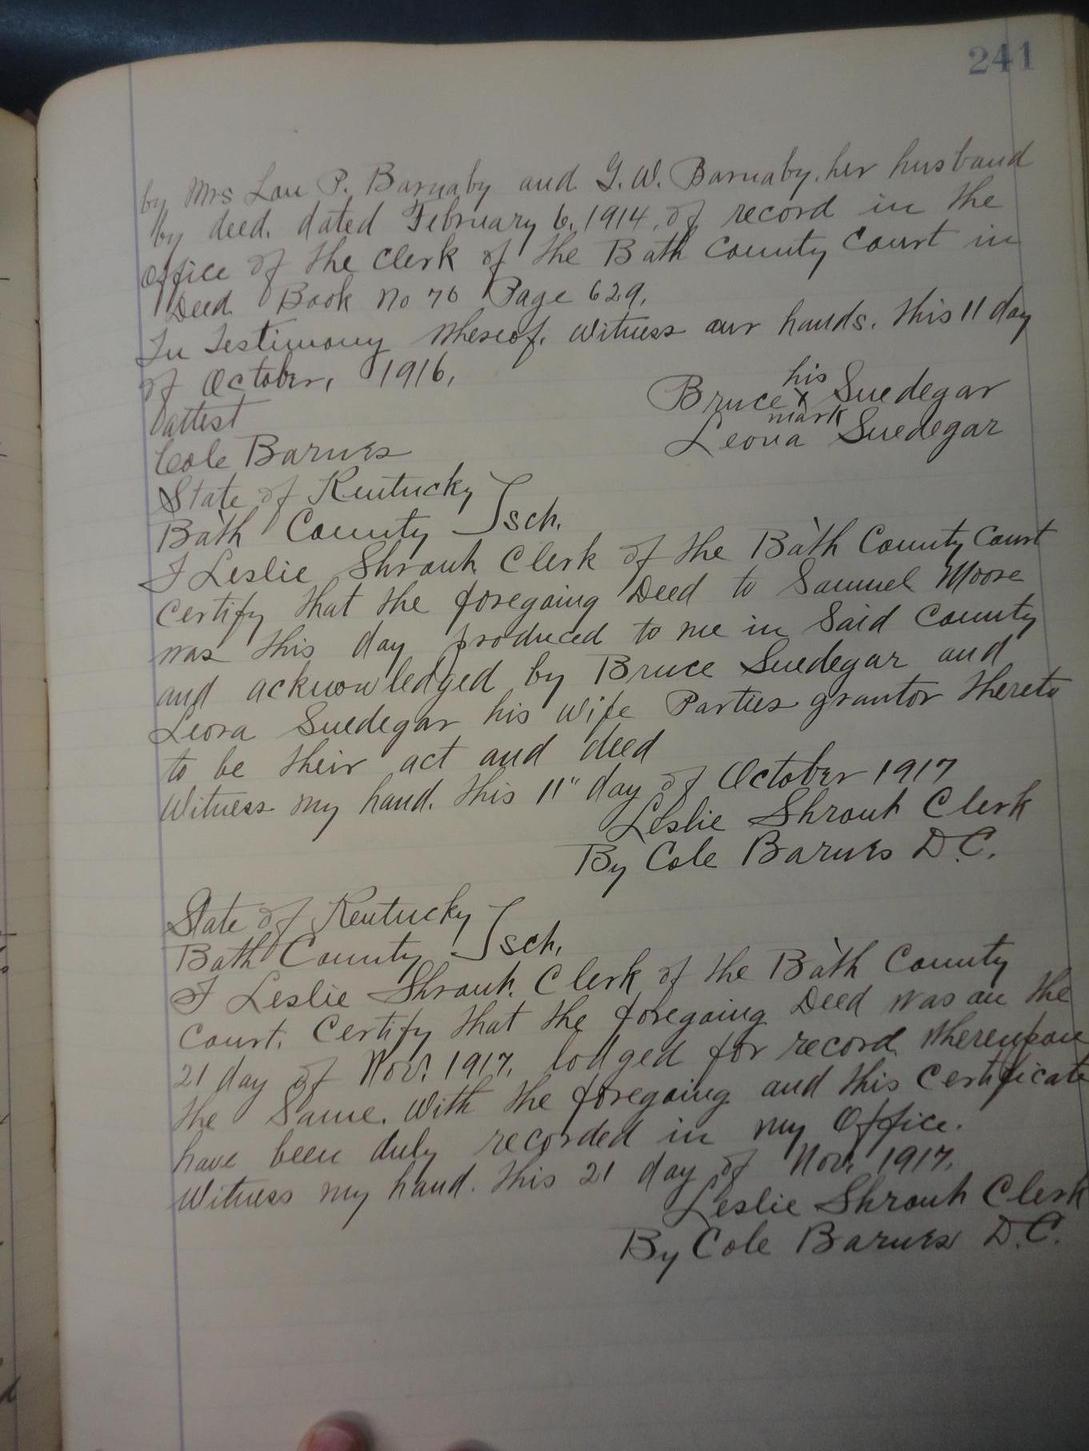 241
by Mrs Lou P. Barnaby and G. W. Barnaby, her husband
by deed. dated February 6, 1914, of record in the
Office of the Clerk of the Bath County Court in
Deed Book No 70 Page 629,
In Testimony Whereof. Witness our hands. This 11 day
of October, 1916,
his
Bruce x Snedegar
mark
attest
Leona Snedegar
Cole Barnes
State of Kentucky
Bath County } sch.
I Leslie Shrout Clerk of the Bath County Court
Certify that the foregoing Deed to Samuel Moore
was this day produced to me in Said County
and acknowledged by Bruce Snedegar and
Leora Snedegar his wife Parties grantor thereto
to be their act and deed
Witness my hand. This 11" day of October 1917
Leslie Shrout Clerk
By Cole Barnes D.C.
State of Kentucky
Bath County } sch.
I Leslie Shrout. Clerk of the Bath County
Court. Certify that the foregoing Deed was on the
21 day of Nov. 1917, lodged for record Whereupon
the Same. With the foregoing and this Certificate
have been duly recorded in my Office.
Witness my hand. This 21 day of Nov. 1917.
Leslie Shrout Clerk
By Cole Barnes D.C.